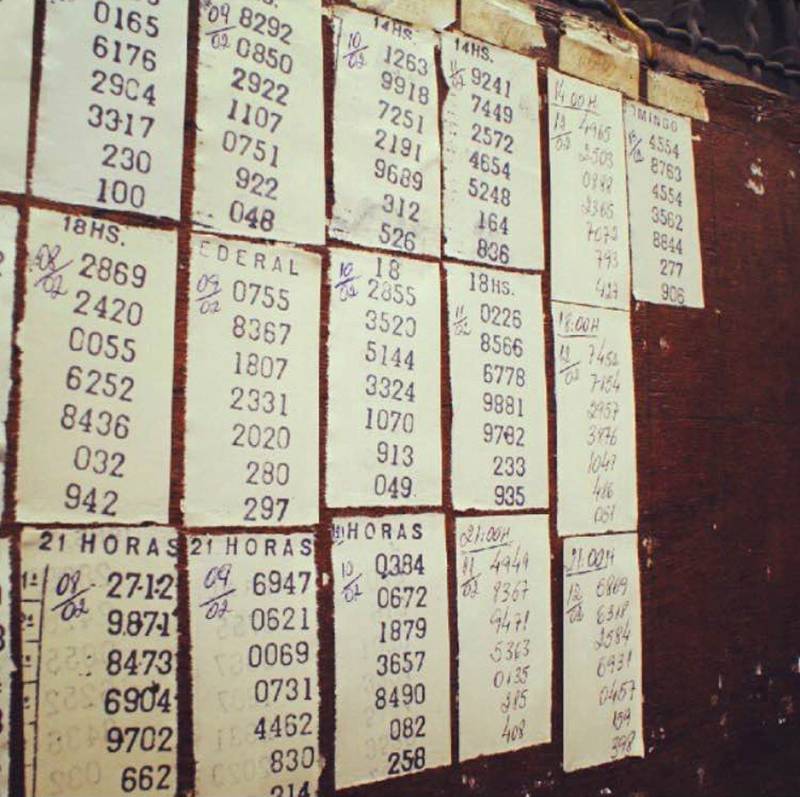 0165
6176
2904
3317
230
100
09/02 8292
0850
2922
1107
0751
922
048
14HS.
10/02 1263
9918
7251
2191
9689
312
526
14HS.
11/02 9241
7449
2572
4654
5248
164
836
14:00H
12/02 4965
2503
0888
2365
7072
793
427
MINGO
4554
8763
4554
3562
8844
277
906
18HS.
08/02 2869
2420
0055
6252
8436
032
942
EDERAL
09/02 0755
8367
1807
2331
2020
280
297
18
10/02 2855
3520
5144
3324
1070
913
049
18HS.
11/02 0226
8566
6778
9881
9782
233
935
18:00H
12/02 7452
7154
2957
3976
1047
486
051
21 HORAS
1º 08/02 2712
9871
8473
6904
9702
662
21 HORAS
09/02 6947
0621
0069
0731
4462
830
214
HORAS
10/02 0384
0672
1879
3657
8490
082
258
21:00H
11/02 4949
8367
9471
5363
0135
285
408
21:00H
12/02 6869
6318
2584
6931
0457
159
398